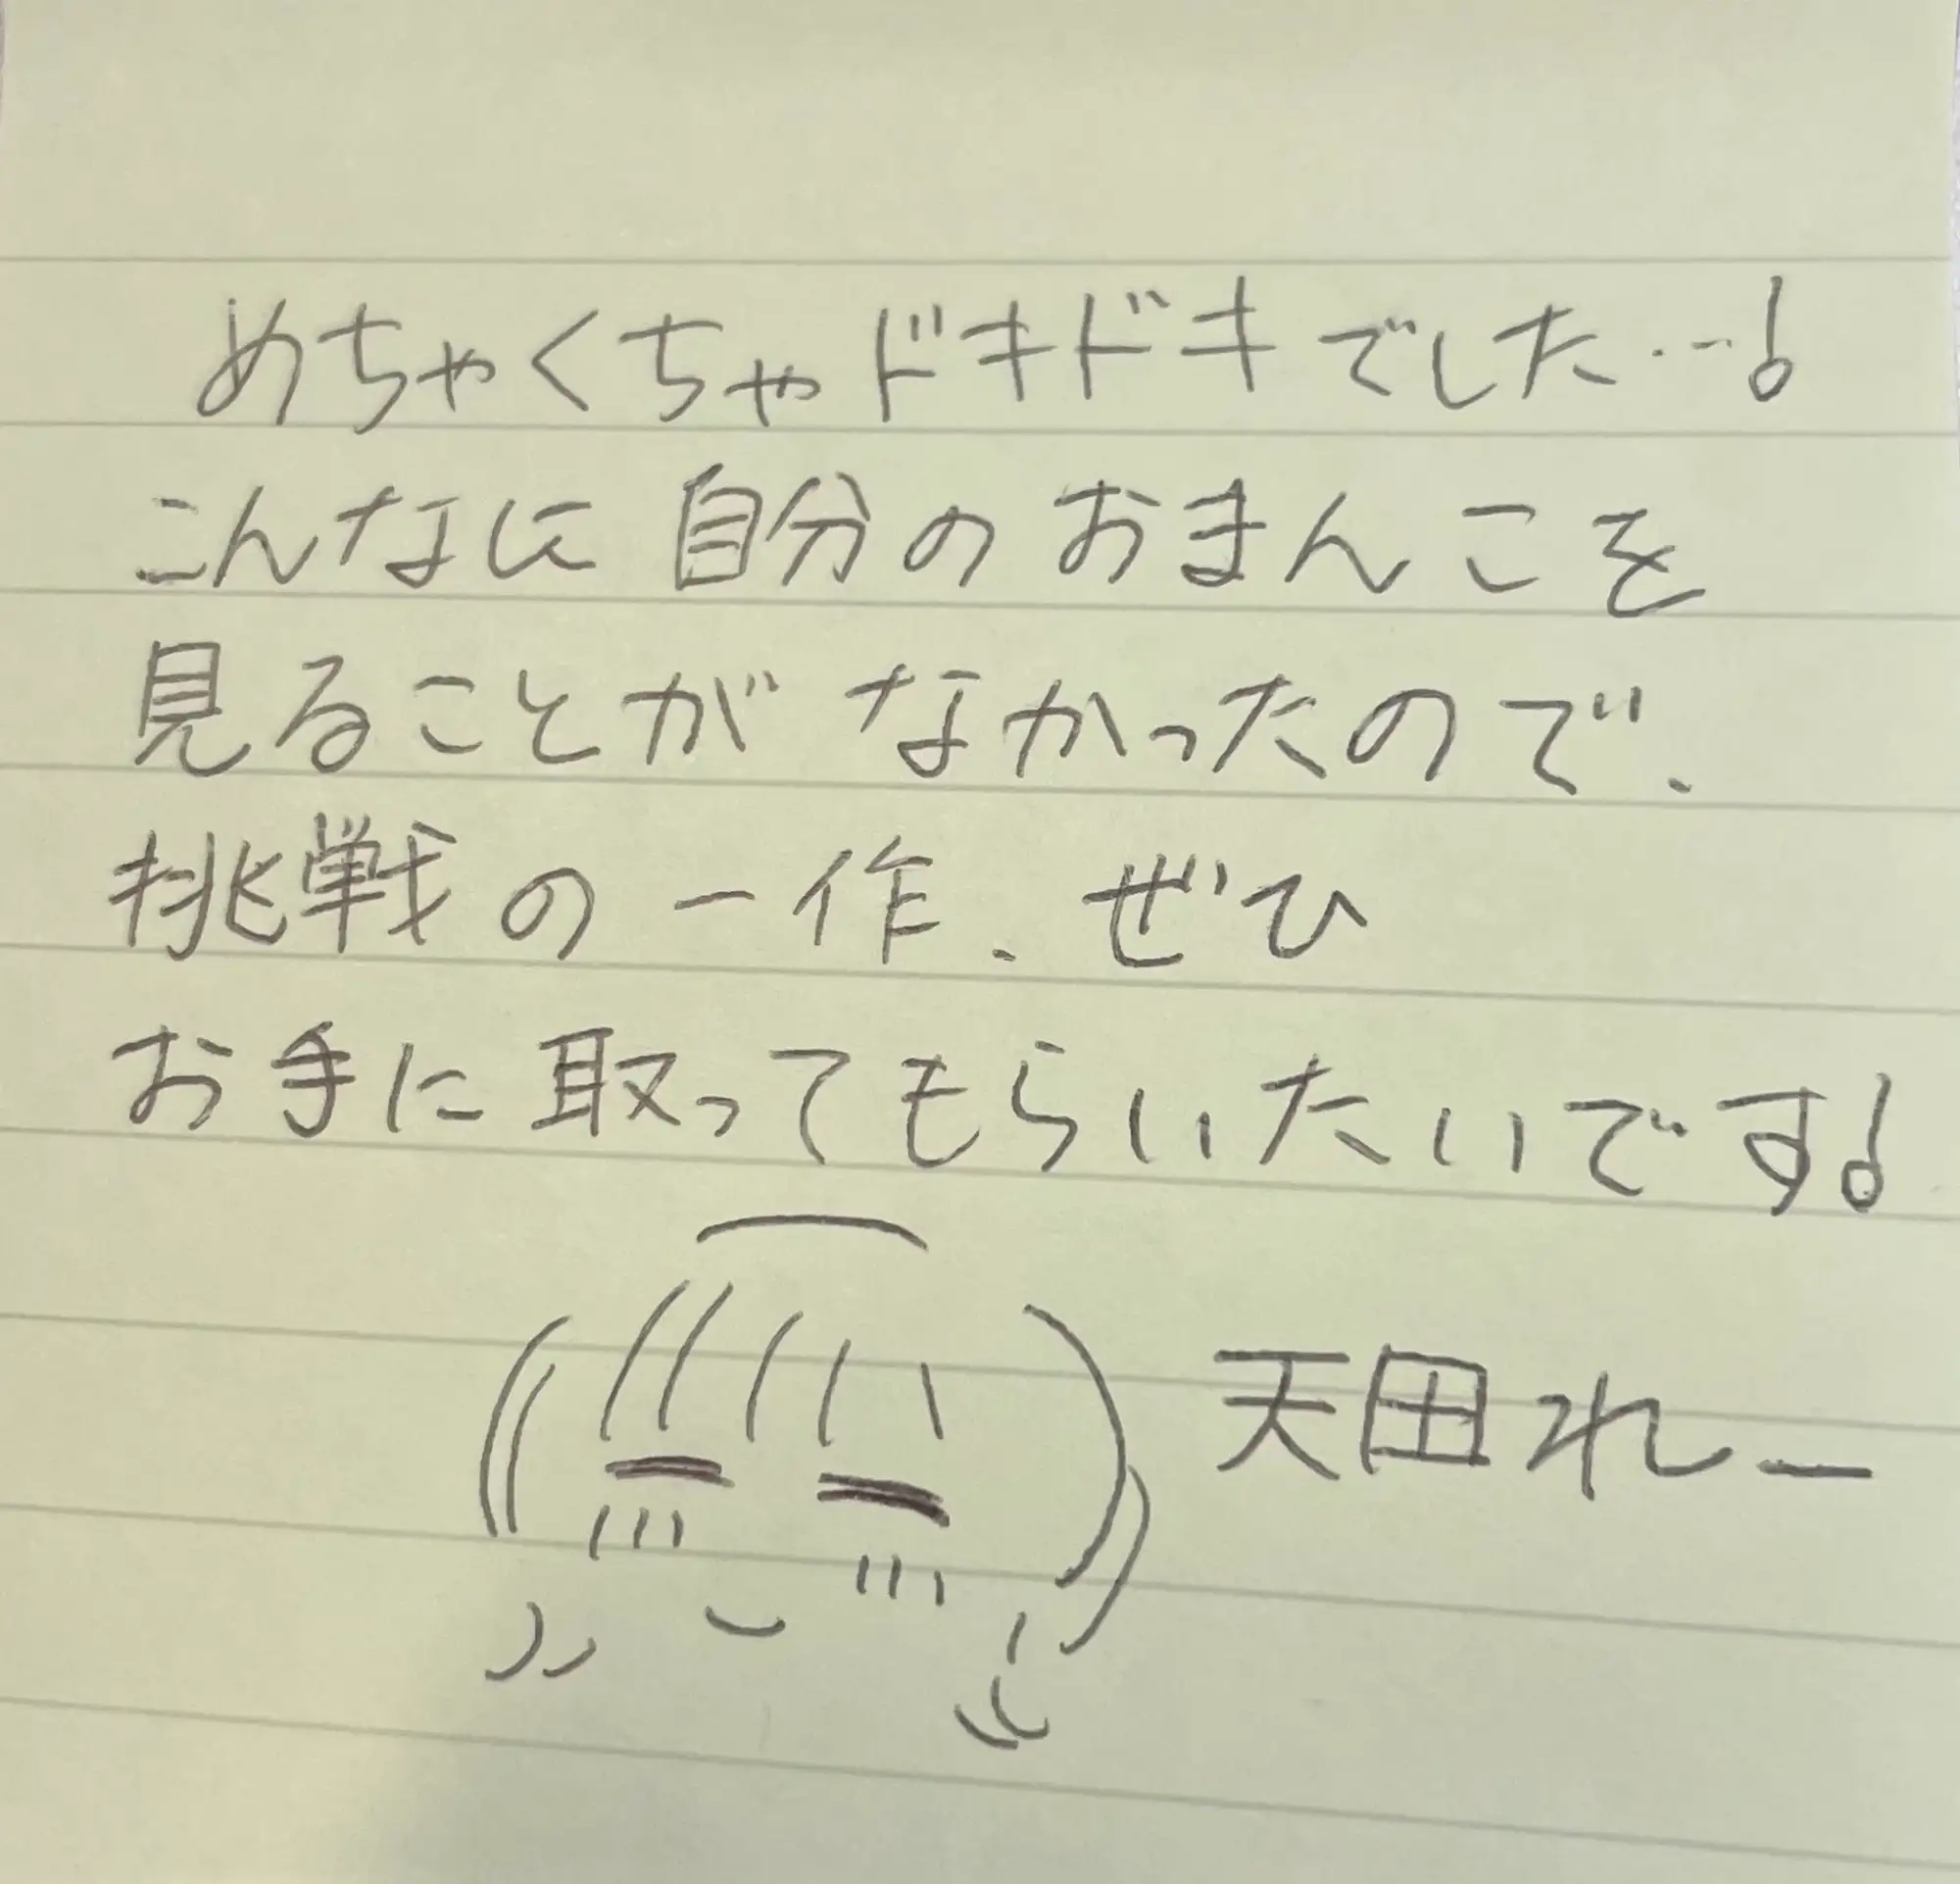 めちゃくちゃドキドキでした…!
こんなに自分のおまんこを
見ることがなかったので、
挑戦の一作、ぜひ
お手に取ってもらいたいです!
天田れー